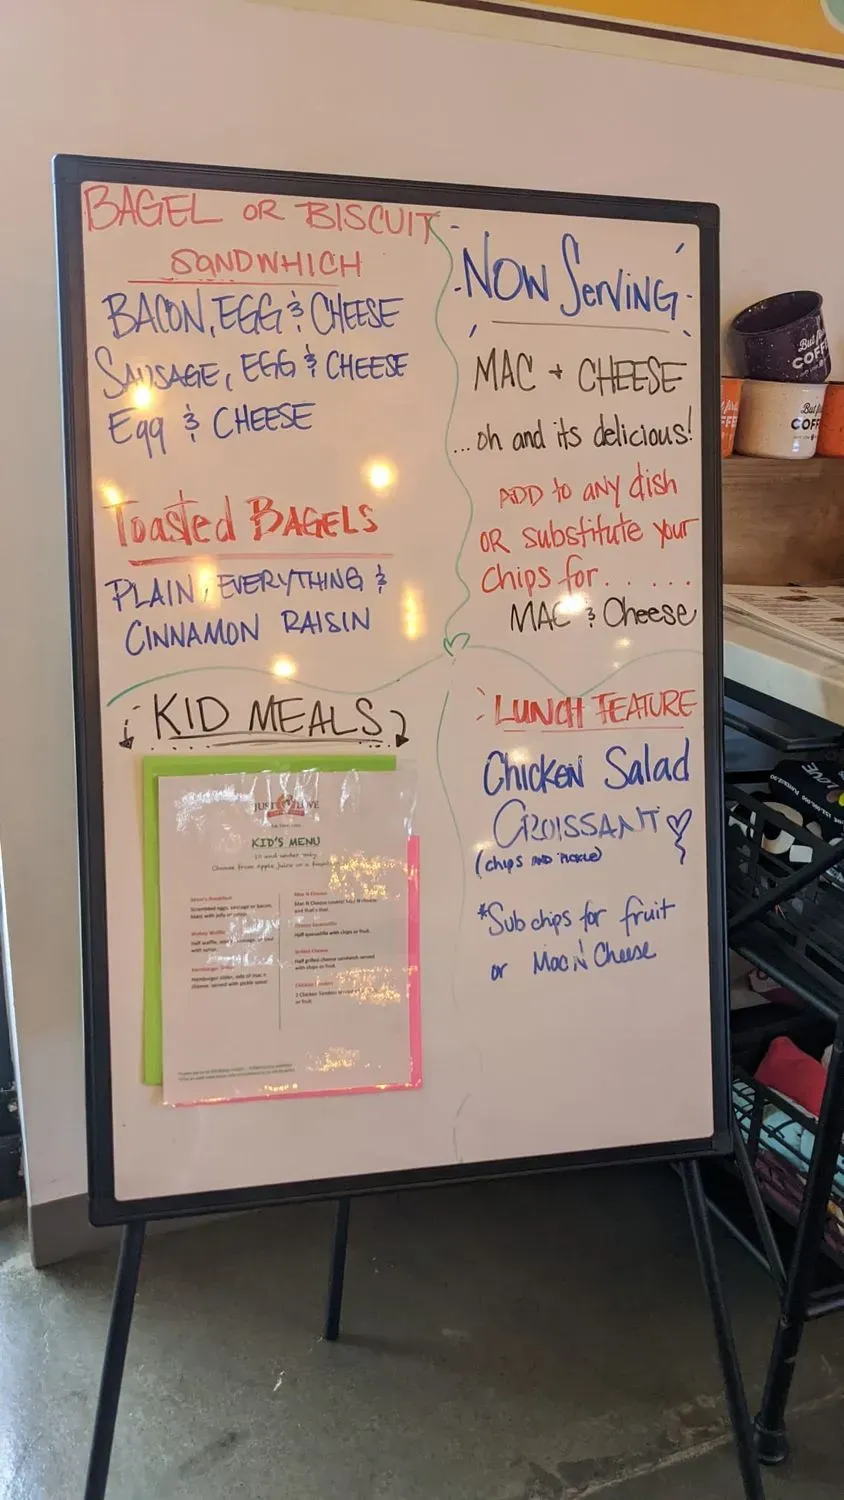 BAGEL OR BISCUIT
SANDWHICH
BACON, EGG & CHEESE
SAUSAGE, EGG & CHEESE
Egg & CHEESE
Toasted BAGELS
PLAIN, EVERYTHING &
CINNAMON RAISIN
KID MEALS
JUST LOVE
KID'S MENU
10 and under only
Choose from apple juice or a
Scrambled eggs, sausage or bacon,
Half waffle,
Hamburger slider, side of mac n
cheese, served with pickle spear
Mac N Cheese
and that's that.
Half quesadilla with chips or fruit.
Grilled Cheese
Half grilled cheese sandwich served
with chips or fruit.
Chicken Tenders
2 Chicken Tenders
or fruit.
NOW SERVING
MAC + CHEESE
...oh and its delicious!
ADD to ANY dish
OR substitute your
Chips for......
MAC & Cheese
LUNCH FEATURE
Chicken Salad
CROISSANT
(chips AND PICKLE)
*Sub chips for fruit
or Mac N Cheese
But first
COFFEE
COFF